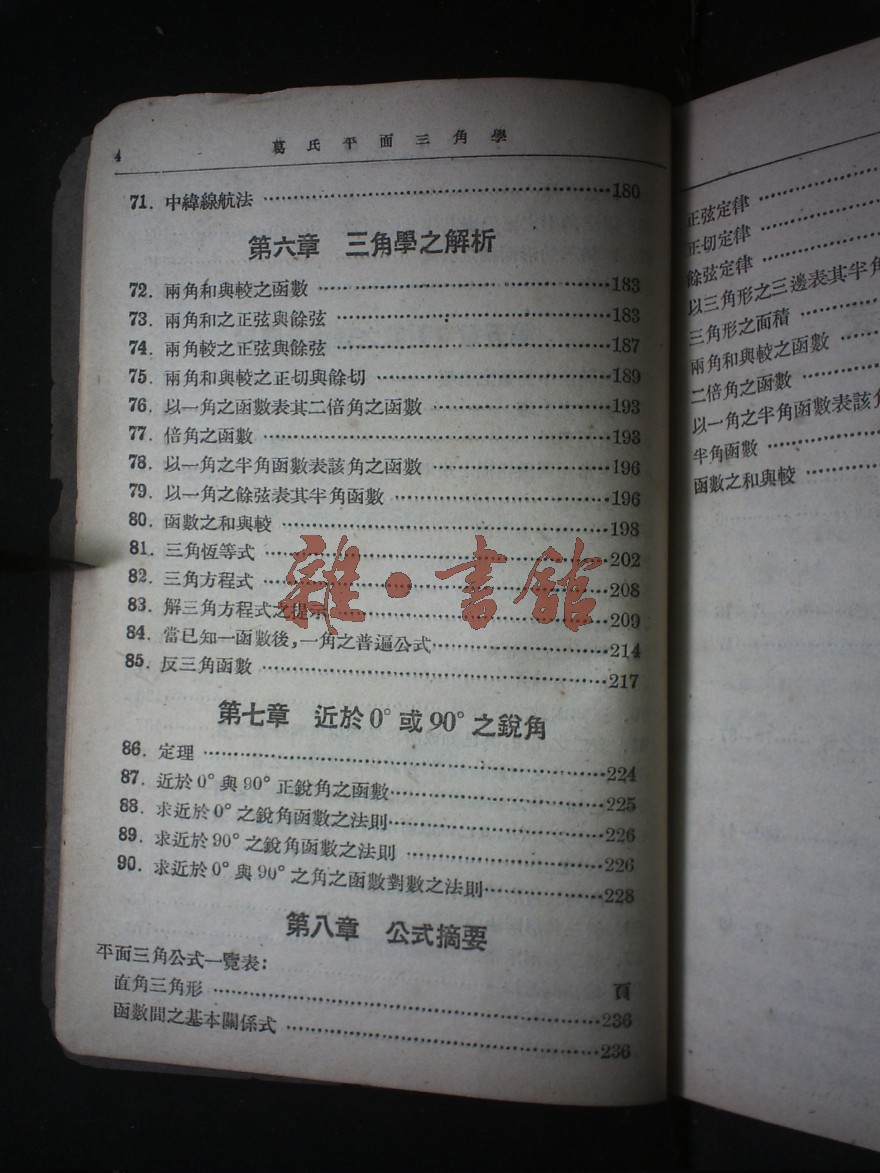 4 葛氏平面三角學
71. 中緯線航法 180
第六章 三角學之解析
72. 兩角和與較之函數 183
73. 兩角和之正弦與餘弦 183
74. 兩角較之正弦與餘弦 187
75. 兩角和與較之正切與餘切 189
76. 以一角之函數表其二倍角之函數 193
77. 倍角之函數 193
78. 以一角之半角函數表該角之函數 196
79. 以一角之餘弦表其半角函數 196
80. 函數之和與較 198
81. 三角恆等式 202
82. 三角方程式 208
83. 解三角方程式之提示 209
84. 當已知一函數後,一角之普遍公式 214
85. 反三角函數 217
第七章 近於0°或90°之銳角
86. 定理 224
87. 近於0°與90°正銳角之函數 225
88. 求近於0°之銳角函數之法則 226
89. 求近於90°之銳角函數之法則 226
90. 求近於0°與90°之角之函數對數之法則 228
第八章 公式摘要
平面三角公式一覽表:
頁
直角三角形 236
函數間之基本關係式 236
正弦定律
正切定律
餘弦定律
以三角形之三邊表其半角
三角形之面積
兩角和與較之函數
二倍角之函數
以一角之半角函數表該角
半角函數
函數之和與較
雜·書館